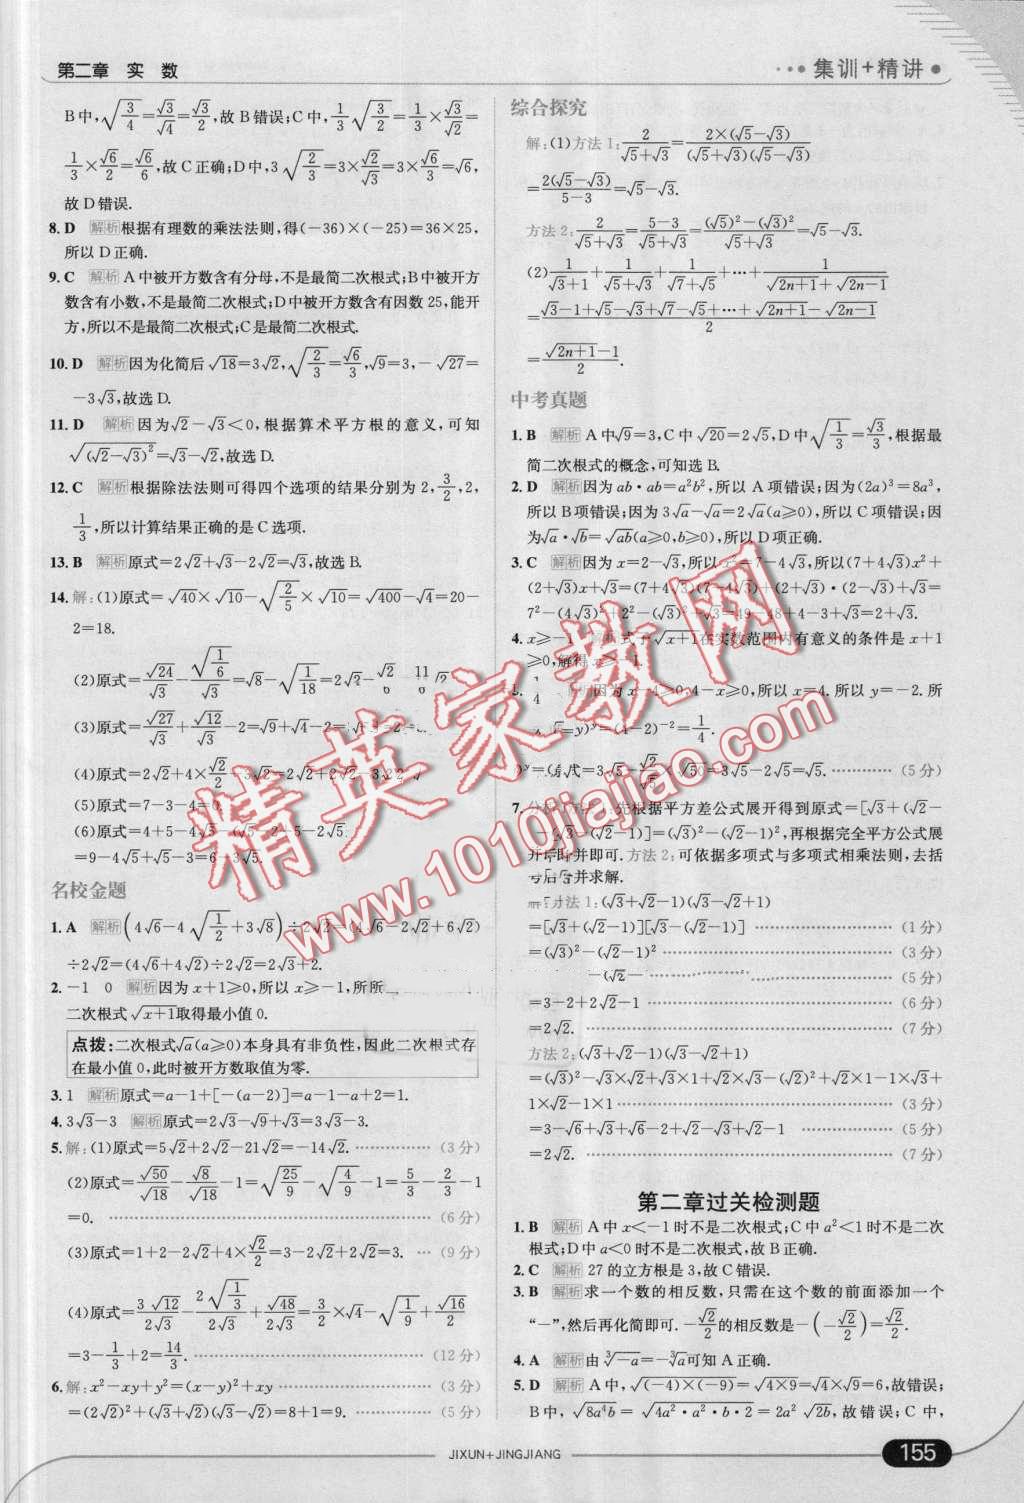 第二章 实 数
集训+精讲
B中,√(3/4)=√3/√4=√3/2,故B错误;C中,(1/3)√(3/2)=(1/3)×√3/√2=
(1/3)×√6/2=√6/6,故C正确;D中,3√(2/3)=3×√2/√3=3×√6/3=√6,
故D错误.
8. D 解析 根据有理数的乘法法则,得(-36)×(-25)=36×25,
所以D正确.
9. C 解析 A中被开方数含有分母,不是最简二次根式;B中被开方
数含有小数,不是最简二次根式;D中被开方数含有因数25,能开
方,所以不是最简二次根式;C是最简二次根式.
10. D 解析 因为化简后√18=3√2,√(2/3)=√6/3,√9=3,-√27=
-3√3,故选D.
11. D 解析 因为√2-√3<0,根据算术平方根的意义,可知
√((√2-√3)²)=√3-√2,故选D.
12. C 解析 根据除法法则可得四个选项的结果分别为2,3/2,2,
1/3,所以计算结果正确的是C选项.
13. B 解析 原式=2√2+√3-2√2=√3,故选B.
14. 解:(1)原式=√40×√10-√(2/5)×√10=√400-√4=20-
2=18.
(2)原式=√24/√3-√(1/6)/√3=√8-√(1/18)=2√2-√2/6=11/6√2.
(3)原式=√27/√3+√12/√3-2=√9+√4-2=
(4)原式=2√2+4×√2/2-3√2=2√2+2√2-3√2=√
(5)原式=7-3-4=0.
(6)原式=4+5-4√5
=9-4√5+√5-3=6-3√5.
名校金题
1. A 解析 (4√6-4√(1/2)+3√8)÷2√2=(4√6-2√2+6√2)
÷2√2=(4√6+4√2)÷2√2=2√3+2.
2. -1 0 解析 因为x+1≥0,所以x≥-1,所
二次根式√(x+1)取得最小值0.
点拨:二次根式√a(a≥0)本身具有非负性,因此二次根式存
在最小值0,此时被开方数取值为零.
3. 1 解析 原式=a-1+[-(a-2)]=a-1-a+2=1.
4. 3√3-3 解析 原式=2√3-√9+√3=3√3-3.
5. 解:(1)原式=5√2+2√2-21√2=-14√2. (3分)
(2)原式=√50/√18-√8/√18-1=√(25/9)-√(4/9)-1=5/3-2/3-1
=0. (6分)
(3)原式=1+2-2√2+4×√2/2=3-2√2+2√2=3. (9分)
(4)原式=3√12/2√3-2√(1/3)/2√3+√48/2√3=(3/2)×√4-√(1/9)+√16/2
=3-1/3+2=14/3. (12分)
6. 解:x²-xy+y²=(x-y)²+xy (3分)
=(2√2)²+(√3+√2)(√3-√2)=8+1=9. (5分)
综合探究
解:(1)方法1:2/(√5+√3)=2×(√5-√3)/((√5+√3)(√5-√3))
=2(√5-√3)/(5-3)=√5-√3.
方法2:2/(√5+√3)=(5-3)/(√5+√3)=((√5)²-(√3)²)/(√5+√3)=√5-√3.
(2)1/(√3+1)+1/(√5+√3)+1/(√7+√5)+…+1/(√(2n+1)+√(2n-1))
=(√3-1+√5-√3+√7-√5+…+√(2n+1)-√(2n-1))/2
=(√(2n+1)-1)/2.
中考真题
1. B 解析 A中√9=3,C中√20=2√5,D中√(1/3)=√3/3,根据最
简二次根式的概念,可知选B.
2. D 解析 因为ab·ab=a²b²,所以A项错误;因为(2a)³=8a³,
所以B项错误;因为3√a-√a=2√a(a≥0),所以C项错误;因
为√a·√b=√(ab)(a≥0,b≥0),所以D项正确.
3. C 解析 因为x=2-√3,所以x²=7-4√3,所以(7+4√3)x²+
(2+√3)x+√3=(7+4√3)(7-4√3)+(2+√3)·(2-√3)+√3=
7²-(4√3)²+2²-(√3)²+√3=49-48+4-3+√3=2+√3.
4. x≥-1 解析 式子√(x+1)在实数范围内有意义的条件是x+1
≥0,解得x≥-1.
5. 1/4 解析 因为x-4≥0,4-x≥0,所以x=4.所以y=-2.所
以(x+y)^y=(4-2)⁻²=1/4.
=3√5-√×√50=3√5-2√5=√5. (5分)
7. 分析:方法1:先根据平方差公式展开得到原式=[√3+(√2-
1)][√3-(√2-1)]=(√3)²-(√2-1)²,再根据完全平方公式展
开合并即可.方法2:可依据多项式与多项式相乘法则,去括
号后合并求解.
解:方法1:(√3+√2-1)(√3-√2+1)
=[√3+(√2-1)][√3-(√2-1)] (1分)
=(√3)²-(√2-1)² (3分)
-(√2- (5分)
=3-2+2√2-1 (6分)
=2√2. (7分)
方法2:(√3+√2-1)(√3-√2+1)
=(√3)²-√3×√2+√3×1+√2×√3-(√2)²+√2×1-1×√3+
1×√2-1×1 (3分)
=3-√6+√3+√6-2+√2-√3+√2-1 (5分)
=2√2. (7分)
第二章过关检测题
1. B 解析 A中x<-1时不是二次根式;C中a²<1时不是二次
根式;D中a<0时不是二次根式,故B正确.
2. C 解析 27的立方根是3,故C错误.
3. B 解析 求一个数的相反数,只需在这个数的前面添加一个
“-”,然后再化简即可.-√2/2的相反数是-(-√2/2)=√2/2.
4. A 解析 由∛(-a)=-∛a可知A正确.
5. D 解析 A中,√((-4)×(-9))=√(4×9)=√4×√9=6,故错误;
B中,√(8a⁴b)=√(4a²·a²·b·2)=2a²√(2b),故错误;C中,
JIXUN+JINGJIANG
155
精英家教网
www.1010jiajiao.com